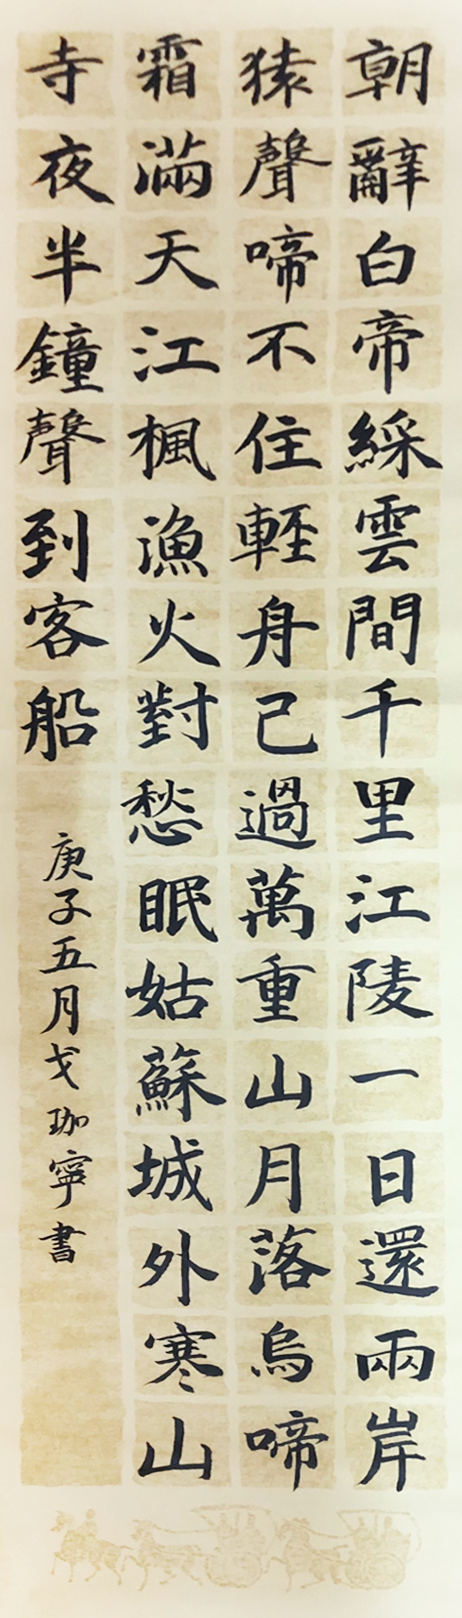 朝辭白帝綵雲間千里江陵一日還兩岸
猿聲啼不住輕舟已過萬重山月落烏啼
霜滿天江楓漁火對愁眠姑蘇城外寒山
寺夜半鐘聲到客船
庚子五月戈珈寧書